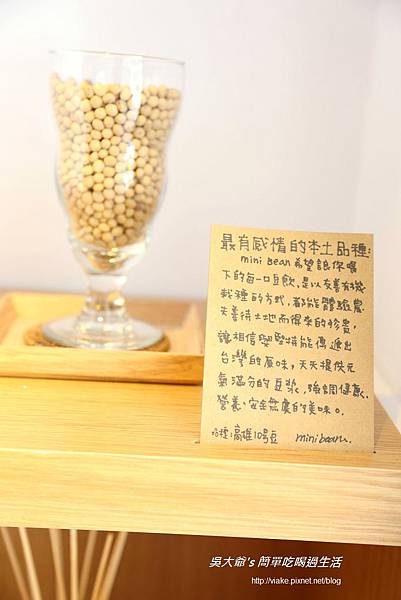 最有感情的本土品種:
mini Bean 希望讓你喝
下的每一口豆飲,是以友善有機
栽種的方式,都能體驗農
夫善待土地而得來的珍貴,
讓相信與堅持能傳遞出
台灣的原味,天天提供元
氣滿分的豆漿,強調健康、
營養、安全無慮的美味。
品種:高雄10號豆 mini bean.
吳大爺's 簡單吃喝過生活
http://viake.pixnet.net/blog